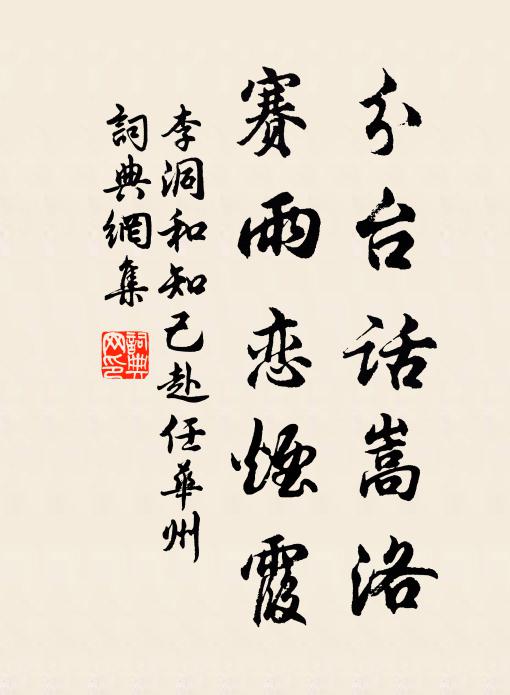 分台话嵩洛
赛雨恋烟霞
李洞和知己赴任華州
詞典網集
詞典网印